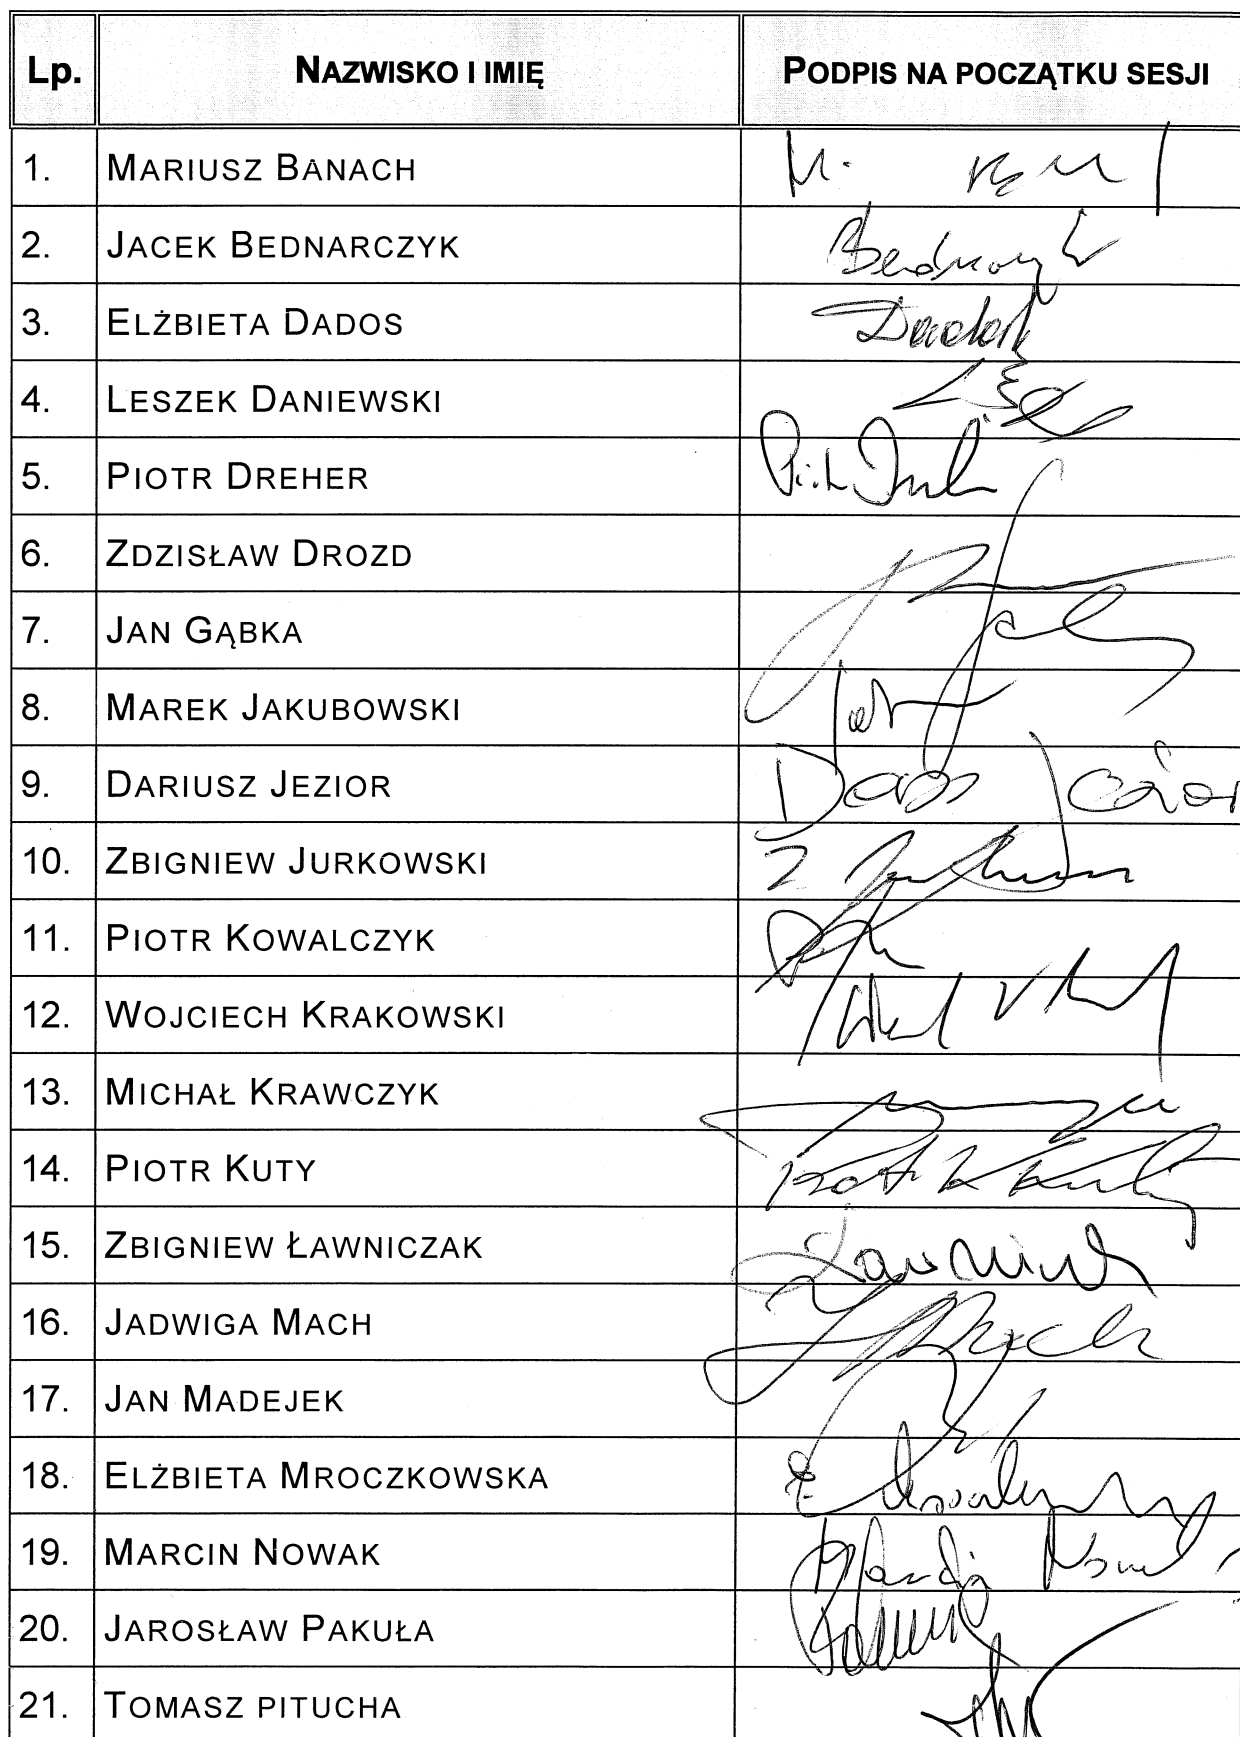 Lp. NAZWISKO I IMIĘ PODPIS NA POCZĄTKU SESJI
1. MARIUSZ BANACH M.
2. JACEK BEDNARCZYK Bednarczyk
3. ELŻBIETA DADOS Dados
4. LESZEK DANIEWSKI
5. PIOTR DREHER Piotr
6. ZDZISŁAW DROZD
7. JAN GĄBKA
8. MAREK JAKUBOWSKI
9. DARIUSZ JEZIOR Jezior
10. ZBIGNIEW JURKOWSKI Z
11. PIOTR KOWALCZYK
12. WOJCIECH KRAKOWSKI
13. MICHAŁ KRAWCZYK
14. PIOTR KUTY Piotr Kuty
15. ZBIGNIEW ŁAWNICZAK
16. JADWIGA MACH Mach
17. JAN MADEJEK
18. ELŻBIETA MROCZKOWSKA E.
19. MARCIN NOWAK Marcin Nowak
20. JAROSŁAW PAKUŁA
21. TOMASZ PITUCHA